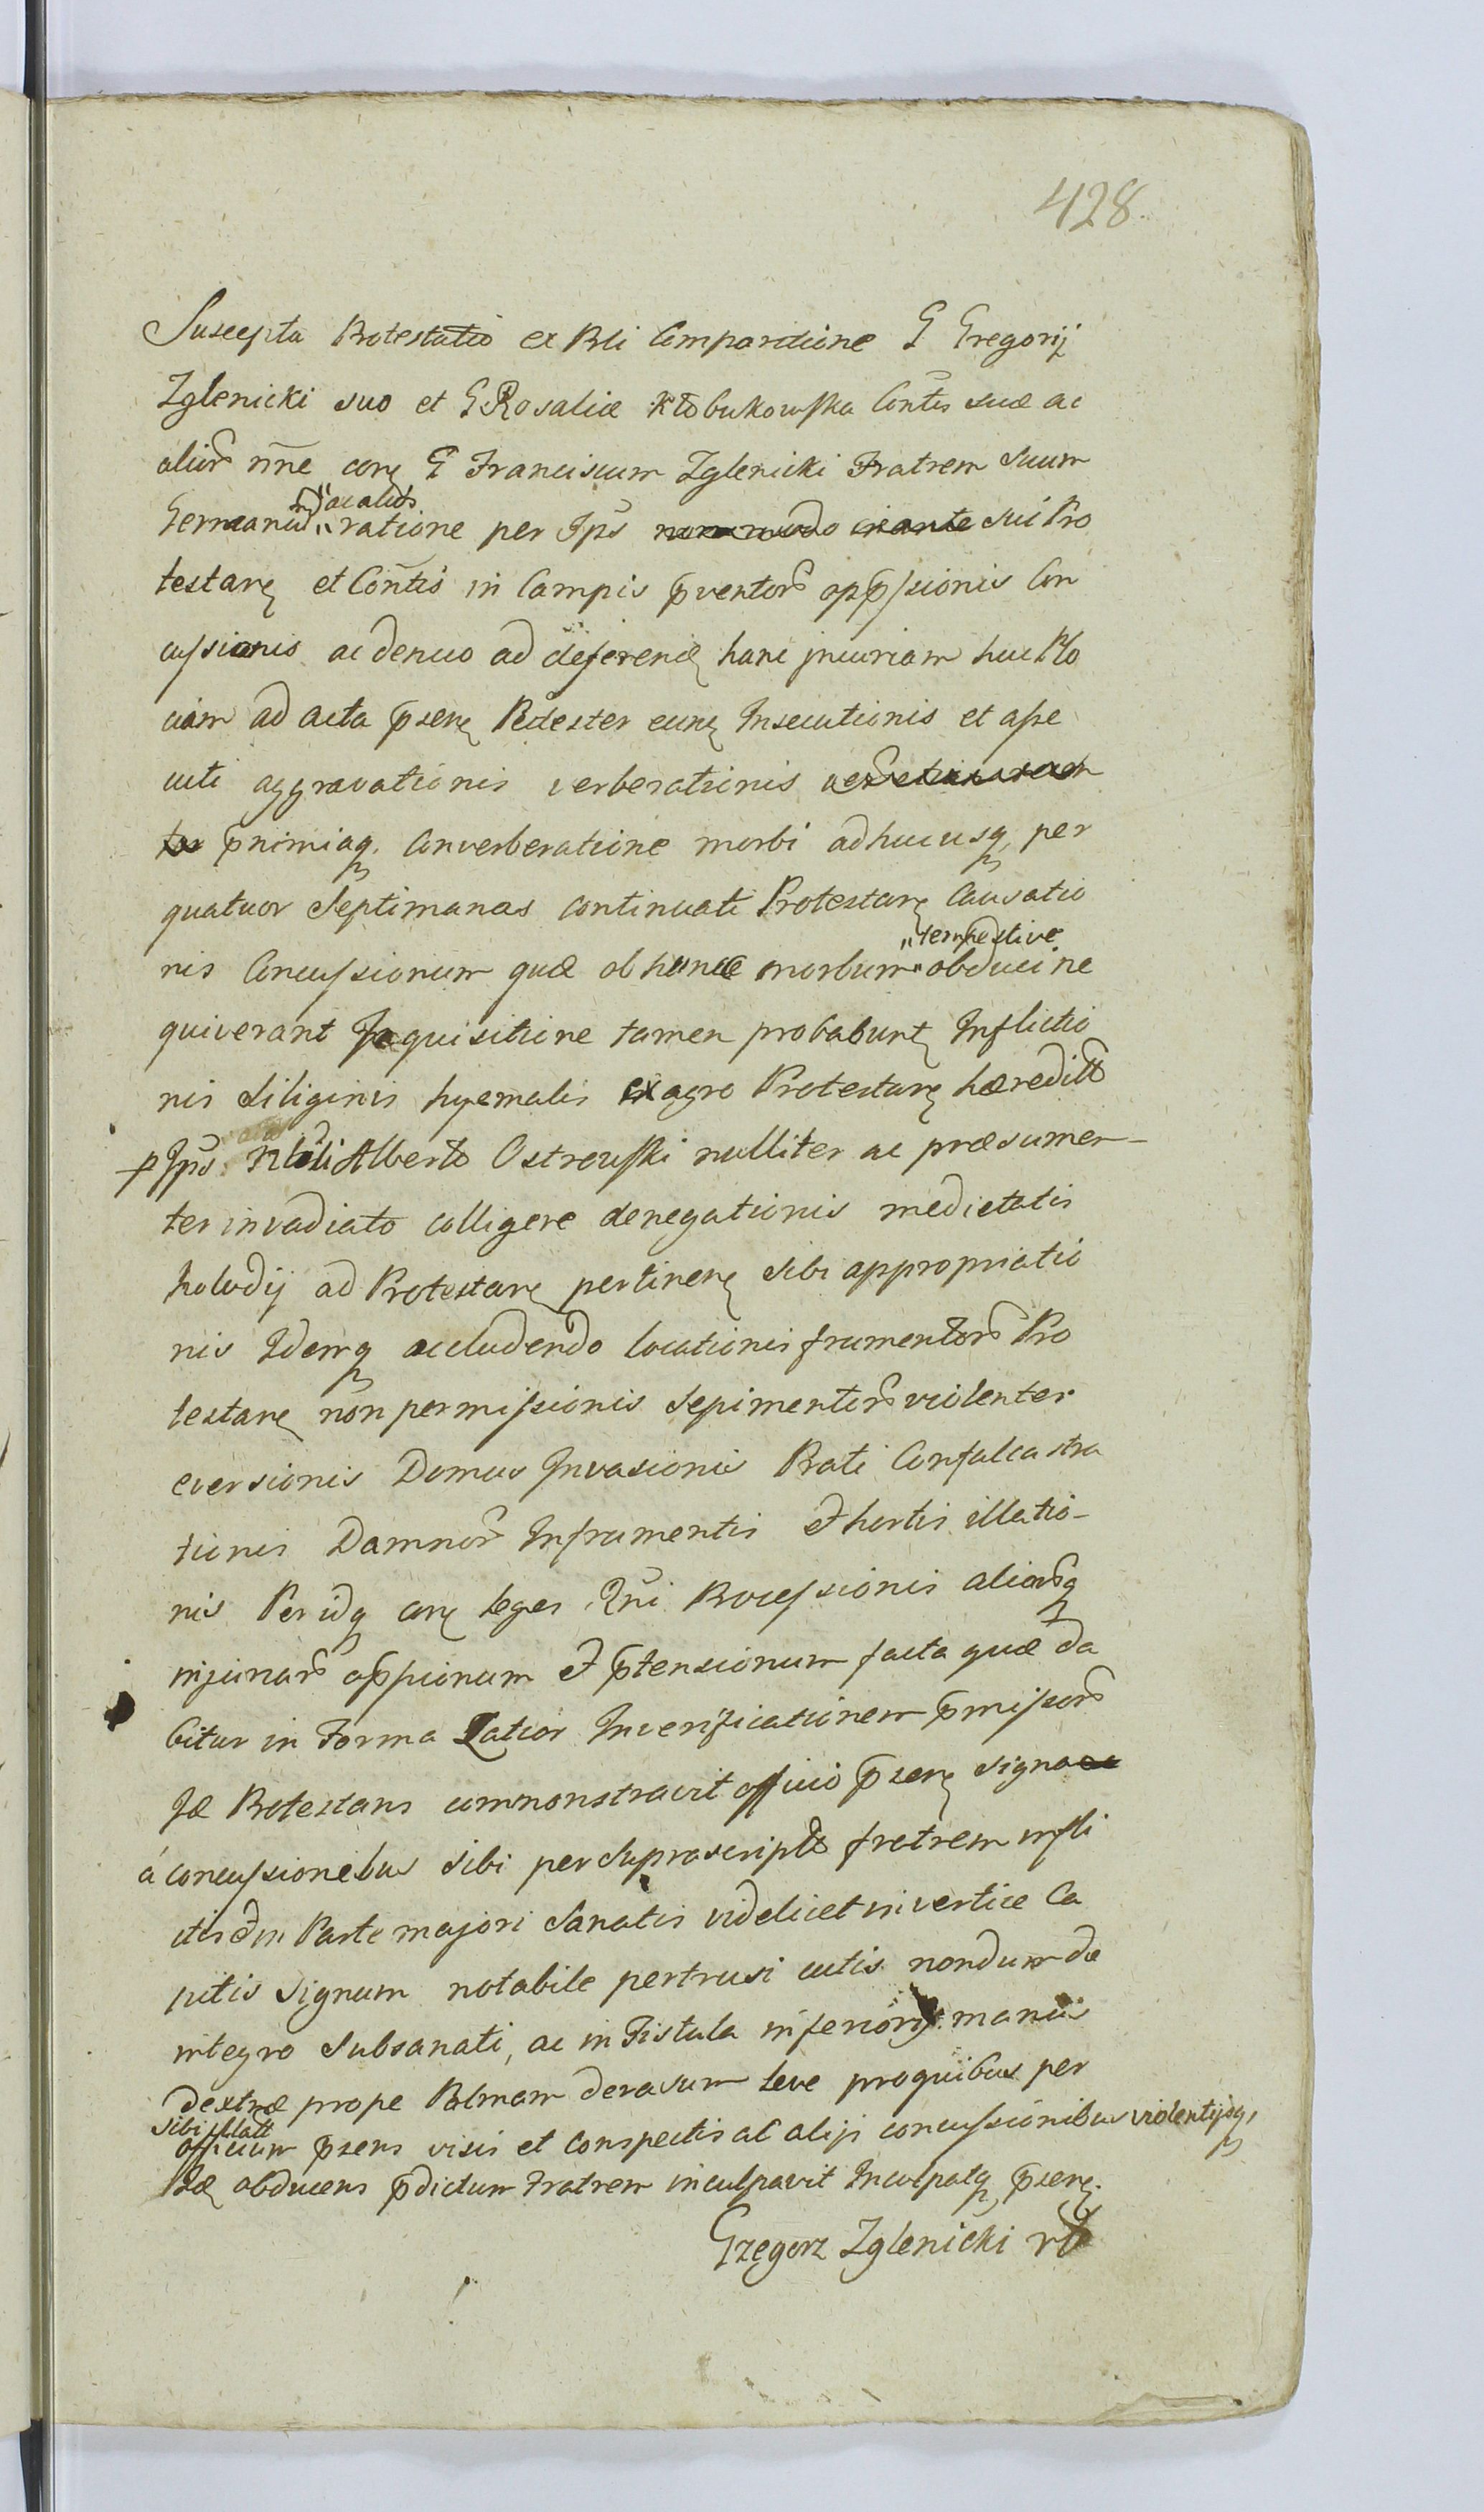 428
Suscepta Protestatio ex Prli Comparitione G Gregorij
Zglenicki suo et G Rosaliæ Kłobukowska Contis suæ ac
alior nne con G Franciscum Zglenicki Fratrem Suum
Germanum ac alios ratione per Ips non modo Sui Pro
testan et Contis in Campis pventor oppssionis Con
cussionis ac denuo ad deferend hanc jnjuriam huc Plo
ciam ad acta psen Pedester eun Insecutionis et asse
cuti aggravationis verberationis
pnimiaq. Converberatione morbi adhucusq per
quatuor Septimanas continuati Protestan Causatio
nis Concussionum quæ ob hunc morbum tempestive obduci ne
quiverant Inquisitione tamen probabunt Inflictio
nis Siliginis hyemalis ex agro Protestan hæredit
p Ips Nbli Alberto Ostrowski nulliter ac præsumen-
ter invadiato colligere denegationis medietatis
holodij ad Protestan pertinen Sibi appropriatio
nis Idemq occludendo locationis frumentor Pro
testan non permissionis Sepimentor violenter
eversionis Domus Invasionis Prati Confalcastra
tionis Damnor In frumentis et hortis illatio-
nis Per idq con leges Rni Processionis aliarq
injuriar oppionum et ptensionum facta quæ da
bitur in Forma Latior In verificationem pmissor
Id Protestans commonstravit officio psen signa
á concussionebus Sibi per Suprascript fratrem infli
ctis et in Parte majori Sanatis videlicet in vertice Ca
pitis Signum notabile pertrusi cutis nondum de
integro Subsanati, ac in Fistula inferiori manus
dextræ prope Palmam derasum leve pro quibus per
officium psens visis et conspectis ac alijs concussionibus Sibi illatt violentijsq,
Id obducens pdictum Fratrem inculpavit Inculpatq psen.
Grzegorz Zglenicki